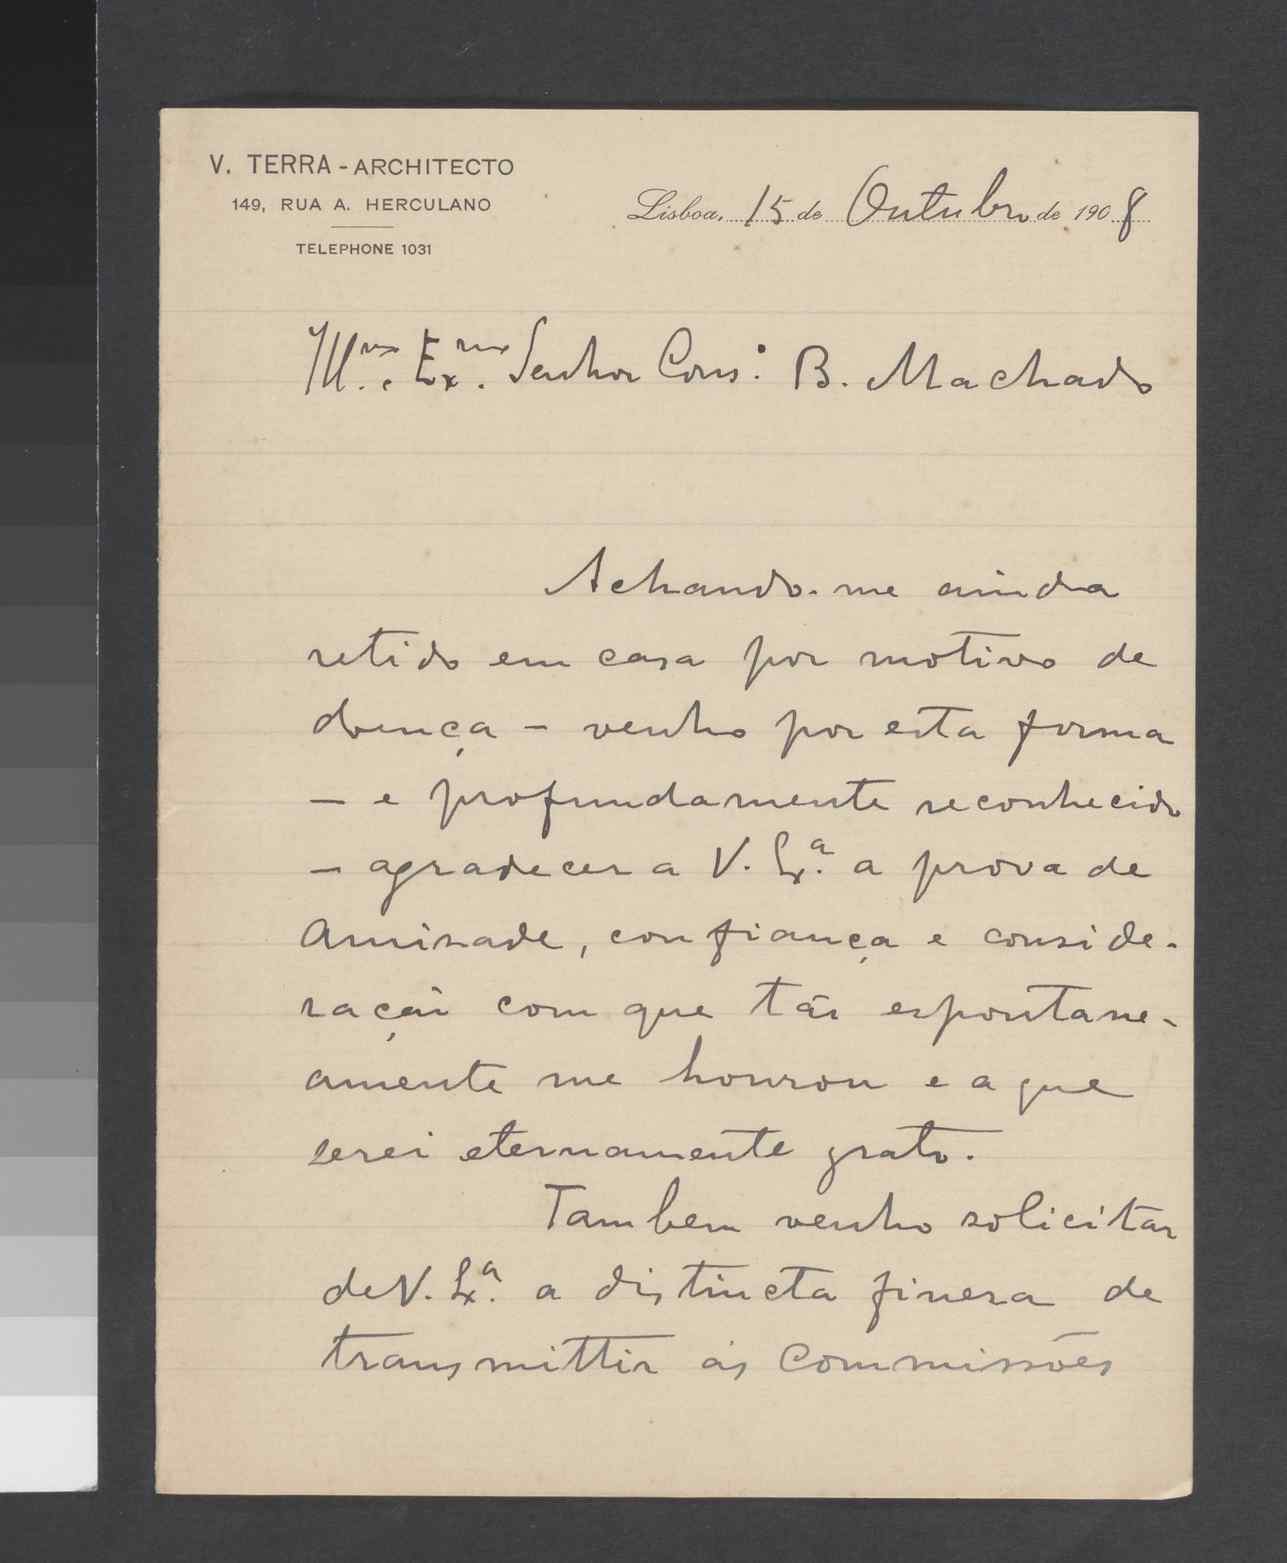 V. TERRA - ARCHITECTO
149, RUA A. HERCULANO
TELEPHONE 1031
Lisboa, 15 de Outubro de 1908
Ill.mo e Ex.mo Senhor Cons.º B. Machado
Achando-me ainda
retido em casa por motivo de
doença - venho por esta forma
- e profundamente reconhecido
- agradecer a V. Ex.ª a prova de
amisade, confiança e conside-
ração com que tão espontane-
amente me honrou e a que
serei eternamente grato.
Tambem venho solicitar
de V. Ex.ª a distincta fineza de
transmittir ás Commissões